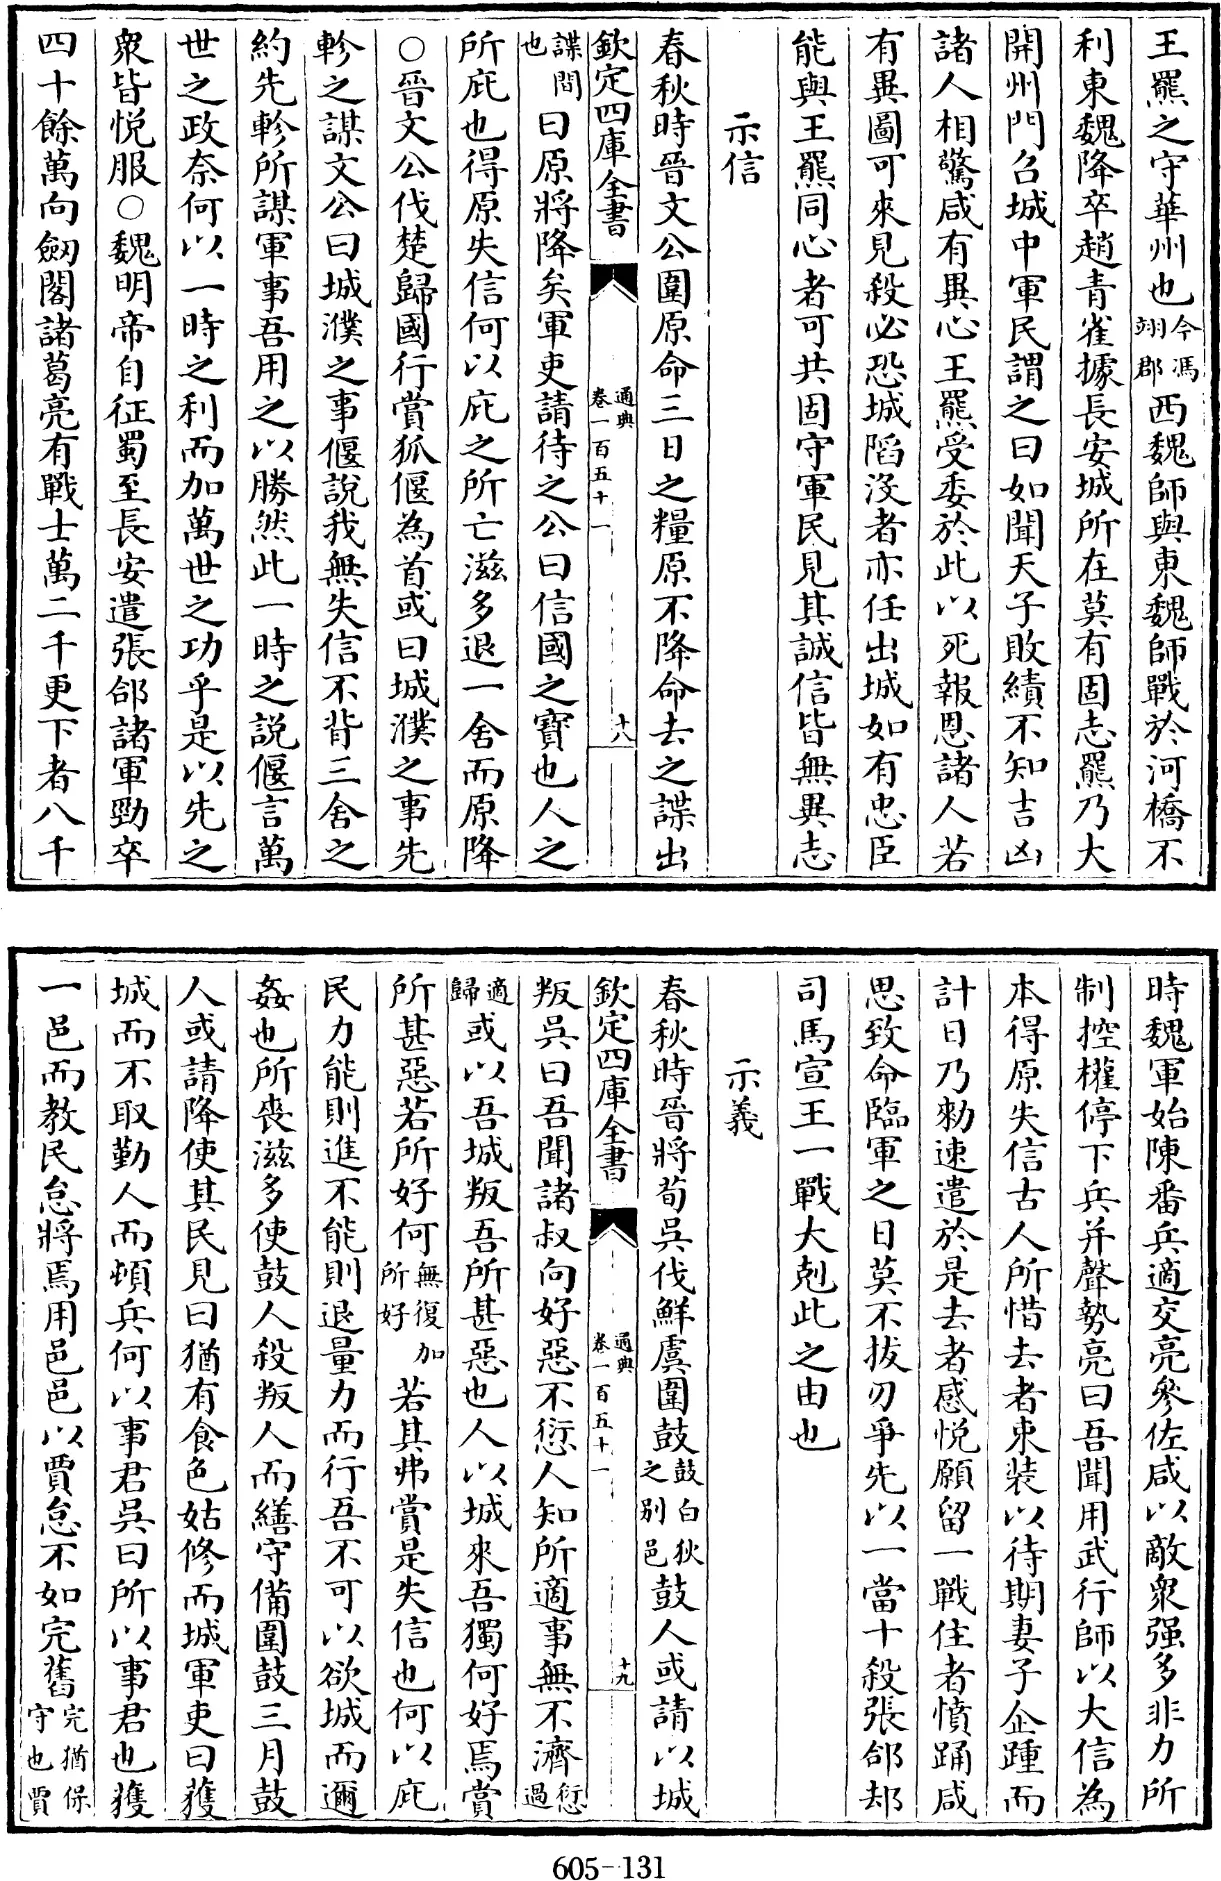 王羆之守華州也今馮翊郡西魏師與東魏師戰於河橋不
利東魏降卒趙青雀據長安城所在莫有固志羆乃大
開州門召城中軍民謂之曰如聞天子敗績不知吉凶
諸人相驚咸有異心王羆受委於此以死報恩諸人若
有異圖可來見殺必恐城陷沒者亦任出城如有忠臣
能與王羆同心者可共固守軍民見其誠信皆無異志
示信
春秋時晉文公圍原命三日之糧原不降命去之諜出
欽定四庫全書
通典
卷一百五十一
十八
諜間也曰原將降矣軍吏請待之公曰信國之寶也人之
所庇也得原失信何以庇之所亡滋多退一舍而原降
○晉文公伐楚歸國行賞狐偃為首或曰城濮之事先
軫之謀文公曰城濮之事偃說我無失信不背三舍之
約先軫所謀軍事吾用之以勝然此一時之說偃言萬
世之政奈何以一時之利而加萬世之功乎是以先之
衆皆悅服○魏明帝自征蜀至長安遣張郃諸軍勁卒
四十餘萬向劔閣諸葛亮有戰士萬二千更下者八千
時魏軍始陳番兵適交亮參佐咸以敵衆强多非力所
制控權停下兵并聲勢亮曰吾聞用武行師以大信為
本得原失信古人所惜去者束裝以待期妻子企踵而
計日乃勑速遣於是去者感悅願留一戰住者憤踊咸
思致命臨軍之日莫不拔刃爭先以一當十殺張郃却
司馬宣王一戰大剋此之由也
示義
春秋時晉將荀吳伐鮮虞圍鼓鼓白狄之别邑鼓人或請以城
欽定四庫全書
通典
卷一百五十一
十九
叛吳曰吾聞諸叔向好惡不愆人知所適事無不濟愆過
適歸或以吾城叛吾所甚惡也人以城來吾獨何好焉賞
所甚惡若所好何無復加所好若其弗賞是失信也何以庇
民力能則進不能則退量力而行吾不可以欲城而邇
姦也所喪滋多使鼓人殺叛人而繕守備圍鼓三月鼓
人或請降使其民見曰猶有食色姑修而城軍吏曰獲
城而不取勤人而頓兵何以事君吳曰所以事君也獲
一邑而教民怠將焉用邑邑以賈怠不如完舊完猶保守也賈
605-131